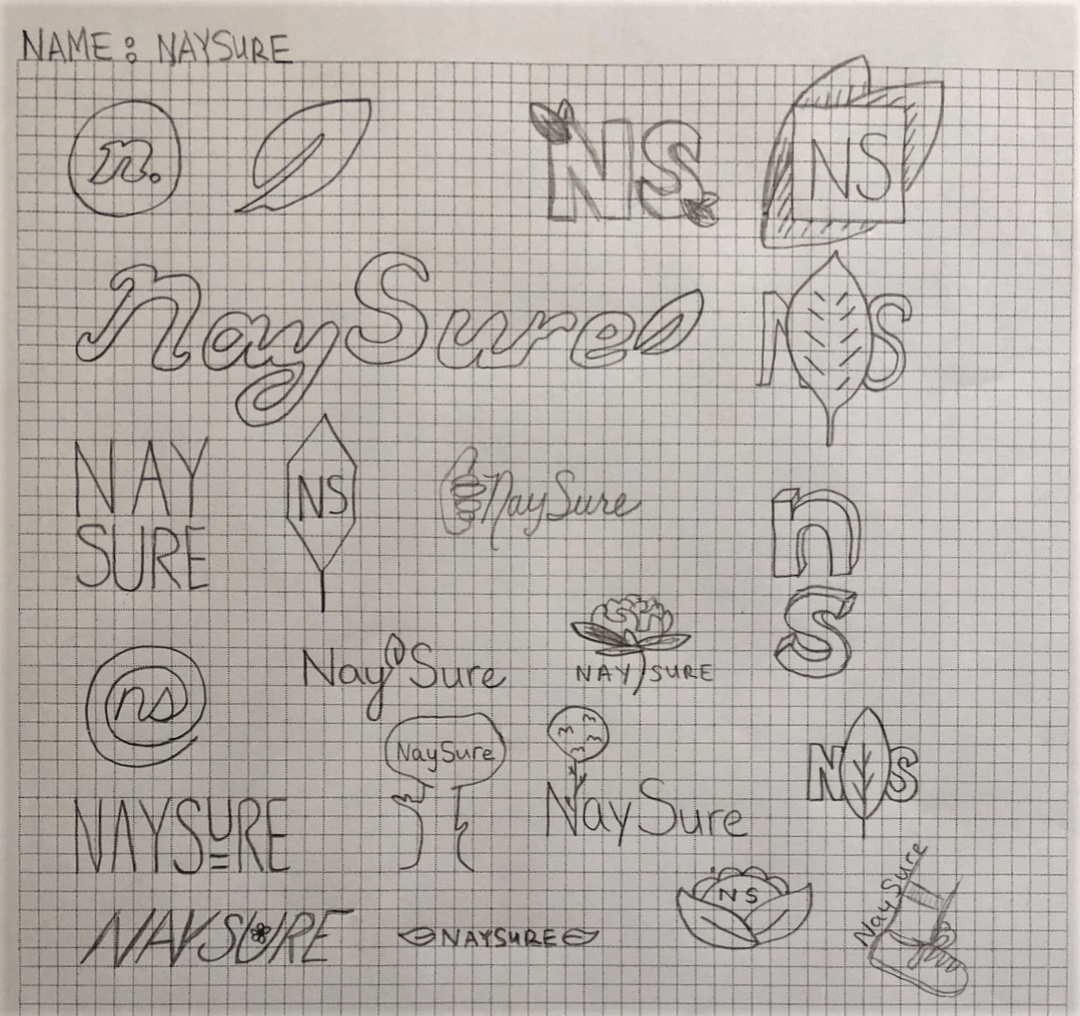 NAME: NAYSURE
n.
NS
NS
NaySure
NS
NAY
SURE
NS
NaySure
n
s
ns
Nay Sure
NAY SURE
NaySure
NaySure
NS
NAYSURE
NS
NaySure
NAYSURE
NAYSURE